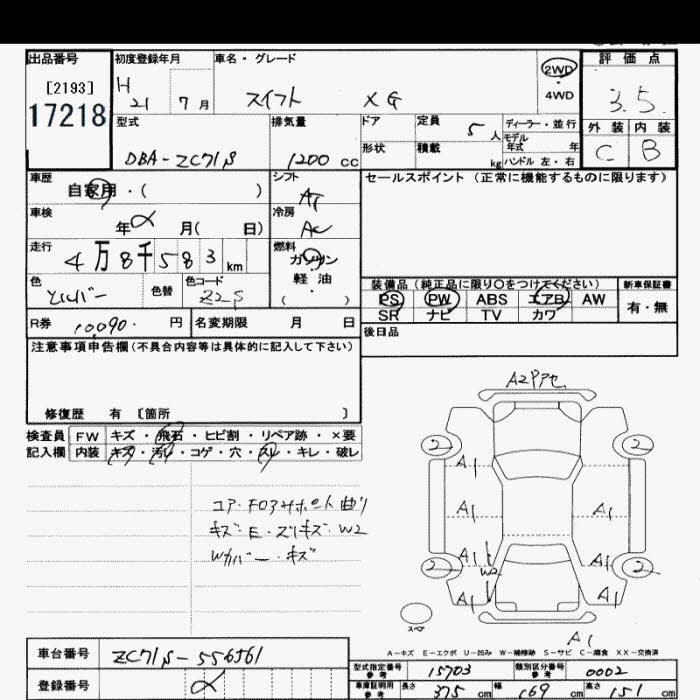 出品番号
[2193]
17218
初度登録年月
H 21 7月
車名・グレード
スイフト XG
2WD
4WD
評価点
3.5
外装 内装
C B
型式
DBA-ZC71S
排気量
1200 cc
ドア
形状
定員 5人
積載 kg
ディーラー・並行
モデル年式 年
ハンドル 左・右
車歴
自家用・( )
車検
年 月( 日)
走行
4万8千583km
色
シルバー
色替
色コード
Z2S
シフト
AT
冷房
AC
燃料
ガソリン
軽油
( ・ )
セールスポイント (正常に機能するものに限ります)
装備品 (純正品に限り○をつけてください)
PS PW ABS エアB AW
SR ナビ TV カワ
新車保証書
有・無
後日品
R券 10090. 円
名変期限 月 日
注意事項申告欄(不具合内容等は具体的に記入して下さい)
修復歴 有 [箇所 ]
検査員
記入欄
FW キズ・飛石・ヒビ割・リペア跡・×要
内装 キズ・汚レ・コゲ・穴・スレ・キレ・破レ
コア・Fロアサポート曲り
キズ・E・スリキズ・W2
Wカバー・キズ
A2Pアセ
2 2
A1
A1 A1
A1 W2 A1
2 2
A1 A1
A1
スペア
A-キズ E-エクボ U-凹み W-補修跡 S-サビ C-腐食 XX-交換済
車台番号
ZC71S-556561
登録番号
型式指定番号
参考
15703
類別区分番号
参考
0002
車庫証明用
参考
長さ 375 cm 幅 169 cm 高さ 151 cm